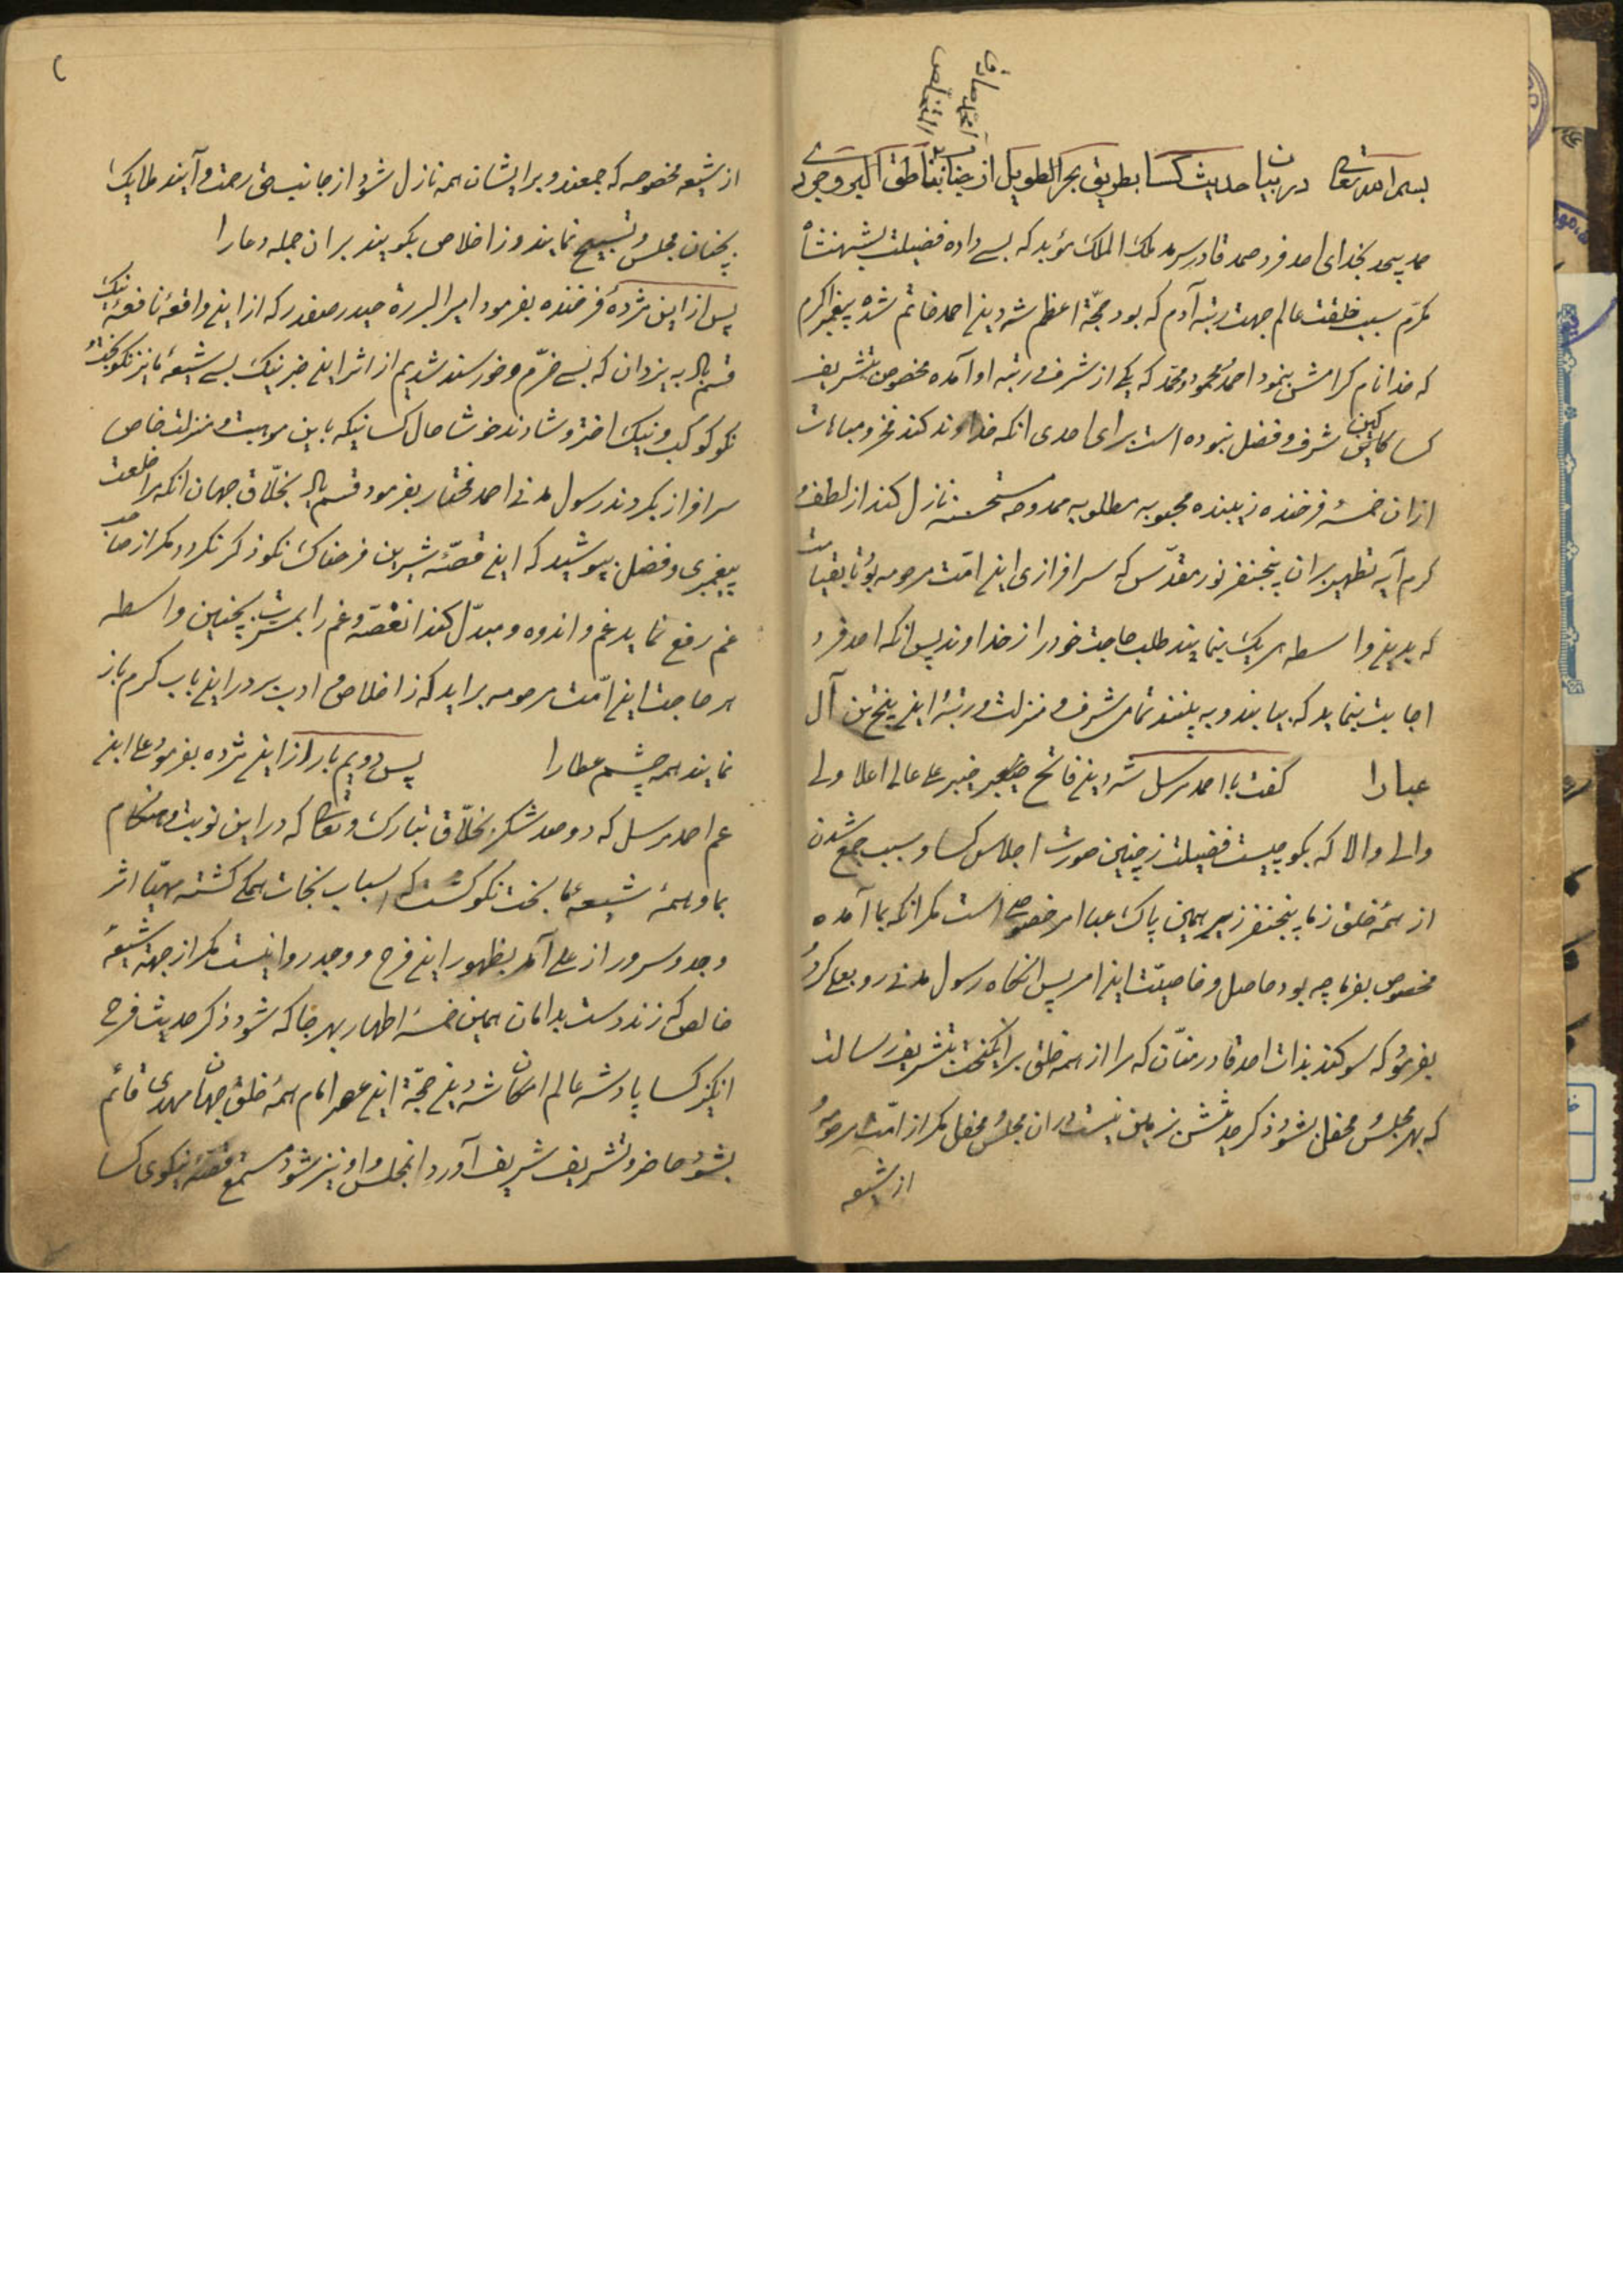 بسم الله تعالی در بیان حدیث کسا بطریق بحر الطویل از جناب ناطق
حمد بیحد بخدای احد فرد صمد قادر سرمد ملک الملک مؤید که بسی داده فضیلت بشهنشاه
مکرم سبب خلقت عالم جهت رتبه آدم که بود حجّة اعظم شه دین احمد خاتم شده پیغمبر اکرم
که خدا نام کرامش بنمود احمد و محمود و محمّد که یکی از شرف و رتبه او آمده مخصوص بتشریف
کسا کاین شرف و فضل نبوده است برای احدی انکه خداوند کند فخر و مباهات
ازان خمسهٔ فرخنده زیبنده محبوبه مطلوبه ممدوحه مستحسنه نازل کند از لطف و
کرم آیه تطهیر بران پنجنفر نور مقدّس که سرافرازی این امّت مرحومه بود تا بقیامت
که بدین واسطه هریک بنمایند طلب حاجت خود را ز خداوند پس انکه احد فرد
اجابت بنماید که بیایند و به بینند تمامی شرف و منزلت و رتبهٔ این پنج تن آل
عبارا گفت با احمد مرسل شه دین فاتح خیبر علی عالی اعلا ولی
والی والا که بگو چیست فضیلت ز چنین صورت اجلاس کسا و سبب جمع شدن
از همهٔ خلق ز ما پنجنفر زیر همین پاک عبا امر خصوصی است مگر انکه بما آمده
مخصوص بفرما چه بود حاصل و خاصیّت این امر پس انگاه رسول مدنی رو بعلی کرد
بفرمود که سوکند بذات احد قادر منّان که مرا از همه خلق برانکیخت بتشریف رسالت
که بهر مجلس و محفل بشود ذکر حدیثش بزمین نیست دران مجلس و محفل مکر از امّت مرحومهٔ
از شیعه
از شیعه مخصوصه که جمعند و برایشان همه نازل شود از جانب حق رحمت و آیند ملایک
بچنان مجلس و تسبیح نمایند و ز اخلاص بکویند بران جمله دعارا
پس از این مژدهٔ فرخنده بفرمود امیر البررة حیدر صفدر که از این واقعهٔ نافعهٔ نیک
قسم باد به یزدان که بسی خرّم و خورسند شدیم از اثر این خبر نیک بسی شیعهٔ ما نیز نکوبخت و
نکو کوکب و نیک اختر و شادند خوشا حال کسانیکه باین موهبت و منزلت خاص
سرافراز بکردند رسول مدنی احمد مختار بفرمود قسم باد بخلّاق جهان انکه مرا خلعت
پیغمبری و فضل بپوشید که این قصّهٔ شیرین فرحناک نکو ذکر نکردد مکر از صاحب
غم رفع نماید غم و اندوه و مبدّل کند ان غصّه و غم را بمسرت بچنین واسطه
هر حاجت این امّت مرحومه براید که ز اخلاص و ادب بر در این باب کرم باز
نمایند همه چشم عطارا پس دویم بار از این مژده بفرمود علی ابن
عم احمد مرسل که دو صد شکر بخلّاق تبارک و تعالی که در این نوبت و هنکام
بما و همهٔ شیعهٔ ما بخت نکو گشت که اسباب نجات همکی کشته مهیّا اثر
وجد و سرور از علی آمد بظهور این فرح و وجد روا نیست مکر از جهة شیعهٔ
خالص که زند دست بدامان همین خمسه اطهار بهر جا که شود ذکر حدیث فرح
انکیز کسا پادشه عالم امکان شه دین حجّة این عصر امام همهٔ خلق جهان مهدی قائم
بشود حاضر و تشریف شریف آورد انمجلس و او نیز شود مستمع قصّهٔ نیکوی کسا